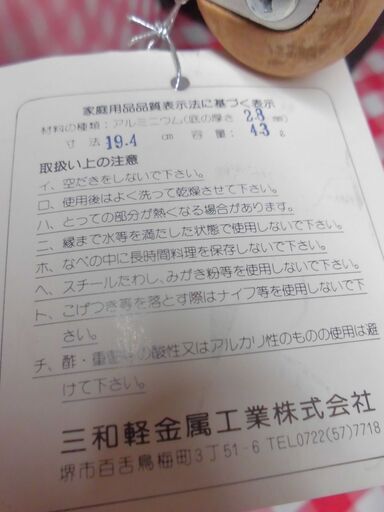 家庭用品品質表示法に基づく表示
材料の種類：アルミニウム(底の厚さ 2.8 mm)
寸法 19.4 cm 容量： 4.3 ℓ
取扱い上の注意
イ、空だきをしないで下さい。
ロ、使用後はよく洗って乾燥させて下さい。
ハ、とっての部分が熱くなる場合があります。
ニ、縁まで水等を満たした状態で使用しないで下さい。
ホ、なべの中に長時間料理を保存しないで下さい。
ヘ、スチールたわし、みがき粉等を使用しないで下さい。
ト、こげつき等を落とす際はナイフ等を使用しないで下
さい。
チ、酢・重曹等の酸性又はアルカリ性のものの使用は避
けて下さい。
三和軽金属工業株式会社
堺市百舌鳥梅町3丁51-6 TEL0722(57)7718